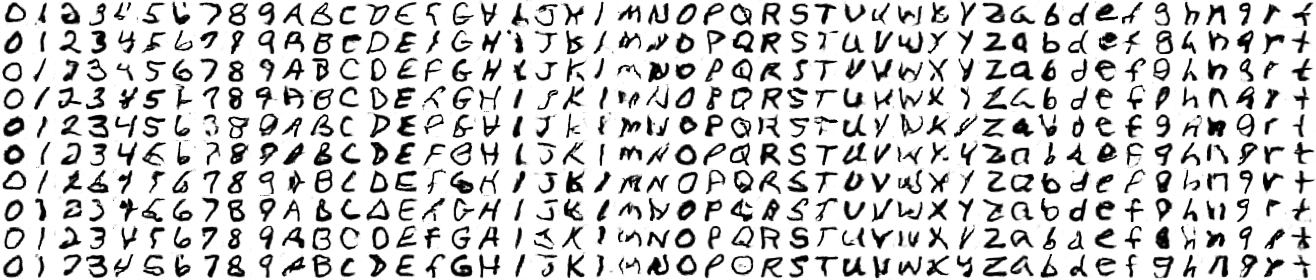 0 1 2 3 4 5 6 7 8 9 A B C D E F G H I J K l m N O P Q R S T U V W X Y Z a b d e f g h n q r t
0 1 2 3 4 5 6 7 8 9 A B C D E F G H i J K l m N O P Q R S T U V W X Y Z a b d e f g h n q r t
0 1 2 3 4 5 6 7 8 9 A B C D E F G H i J K l m N O P Q R S T U V W X Y Z a b d e f g h n q r t
0 1 2 3 4 5 6 7 8 9 A B C D E F G H I J K l m N O P Q R S T U V W X Y Z a b d e f g h n q r t
0 1 2 3 4 5 6 7 8 9 A B C D E F G H I J K l m N O P Q R S T U V W X Y Z a b d e f g h n q r t
0 1 2 3 4 5 6 7 8 9 A B C D E F G H I J K l m N O P Q R S T U V W X Y Z a b d e f g h n q r t
0 1 2 3 4 5 6 7 8 9 A B C D E F G H I J K l m N O P Q R S T U V W X Y Z a b d e f g h n q r t
0 1 2 3 4 5 6 7 8 9 A B C D E F G H I J K l m N O P Q R S T U V W X Y Z a b d e f g h n q r t
0 1 2 3 4 5 6 7 8 9 A B C D E F G H I J K l m N O P Q R S T U V W X Y Z a b d e f g h n q r t
0 1 2 3 4 5 6 7 8 9 A B C D E F G H I J K l m N O P Q R S T U V W X Y Z a b d e f g h n q r t